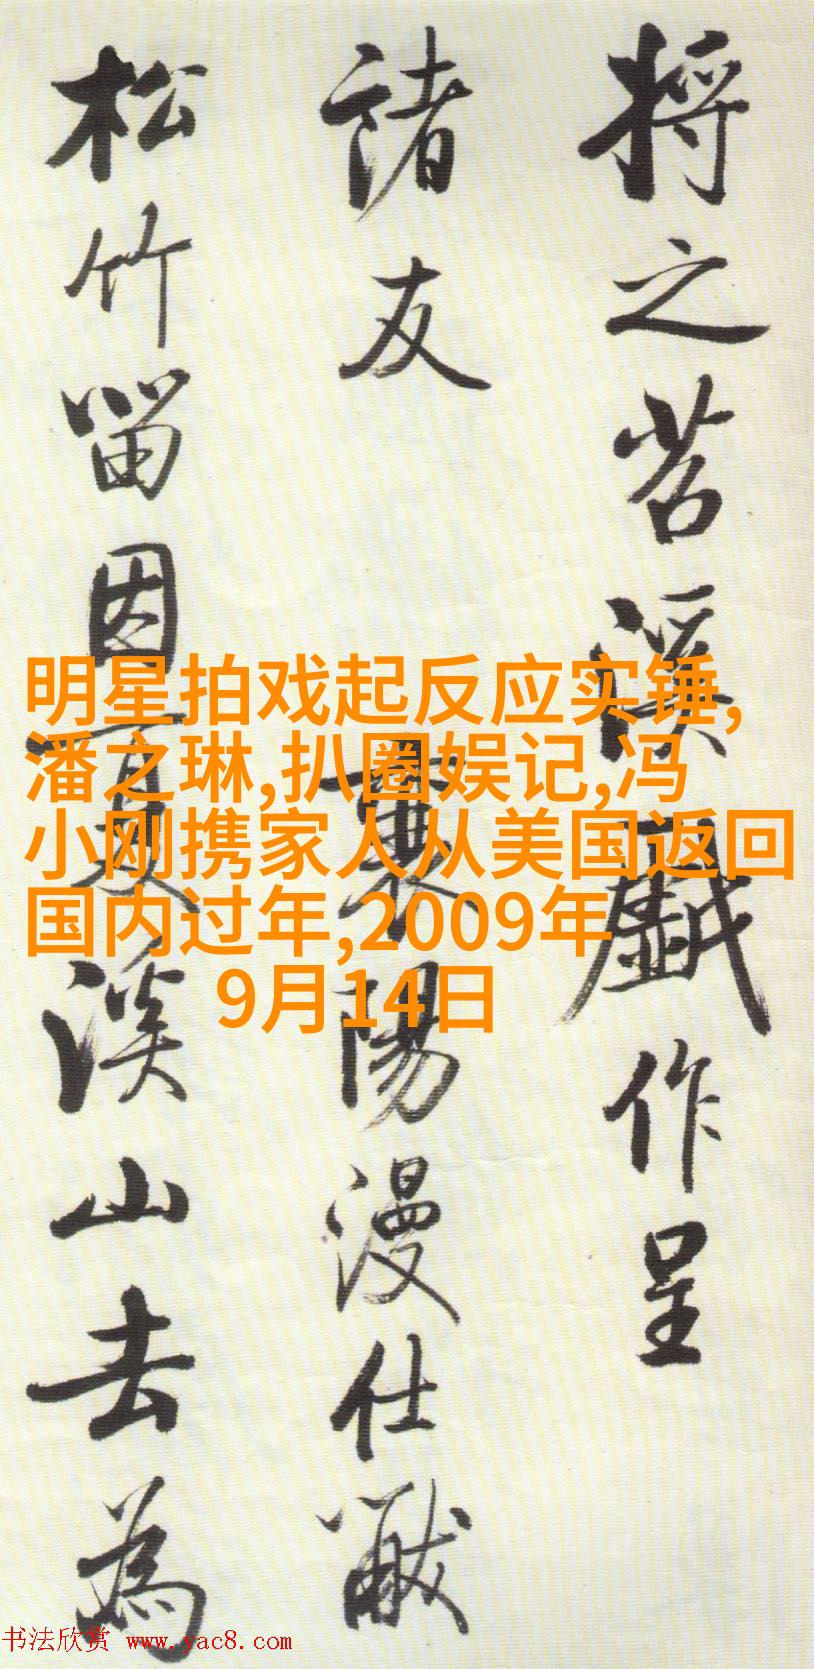 将之苕溪戲作呈
諸友
襄陽漫仕黻
松竹留因夏溪山去為
明星拍戏起反应实锤,
潘之琳,扒圈娱记,冯
小刚携家人从美国返回
国内过年,2009年
9月14日
书法欣赏 www.yac8.com